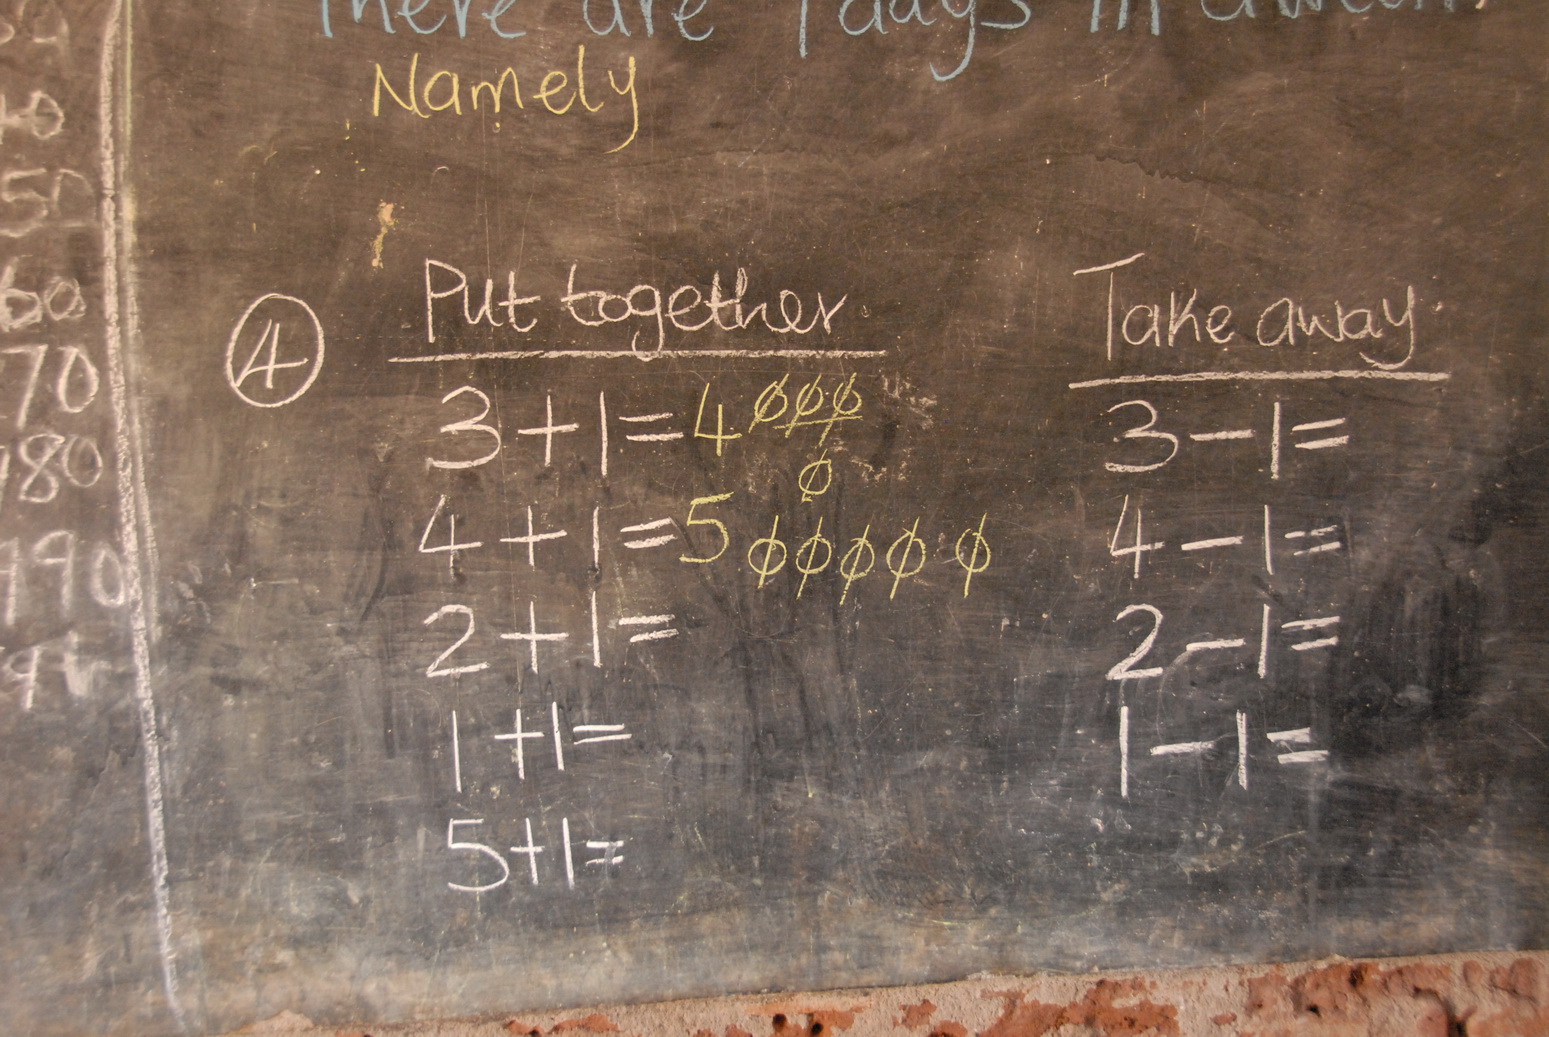 There are 7 days in a week.
Namely
40
50
60
70
180
190
④
Put together
3+1=4
4+1=5
2+1=
1+1=
5+1=
Take away.
3-1=
4-1=
2-1=
1-1=